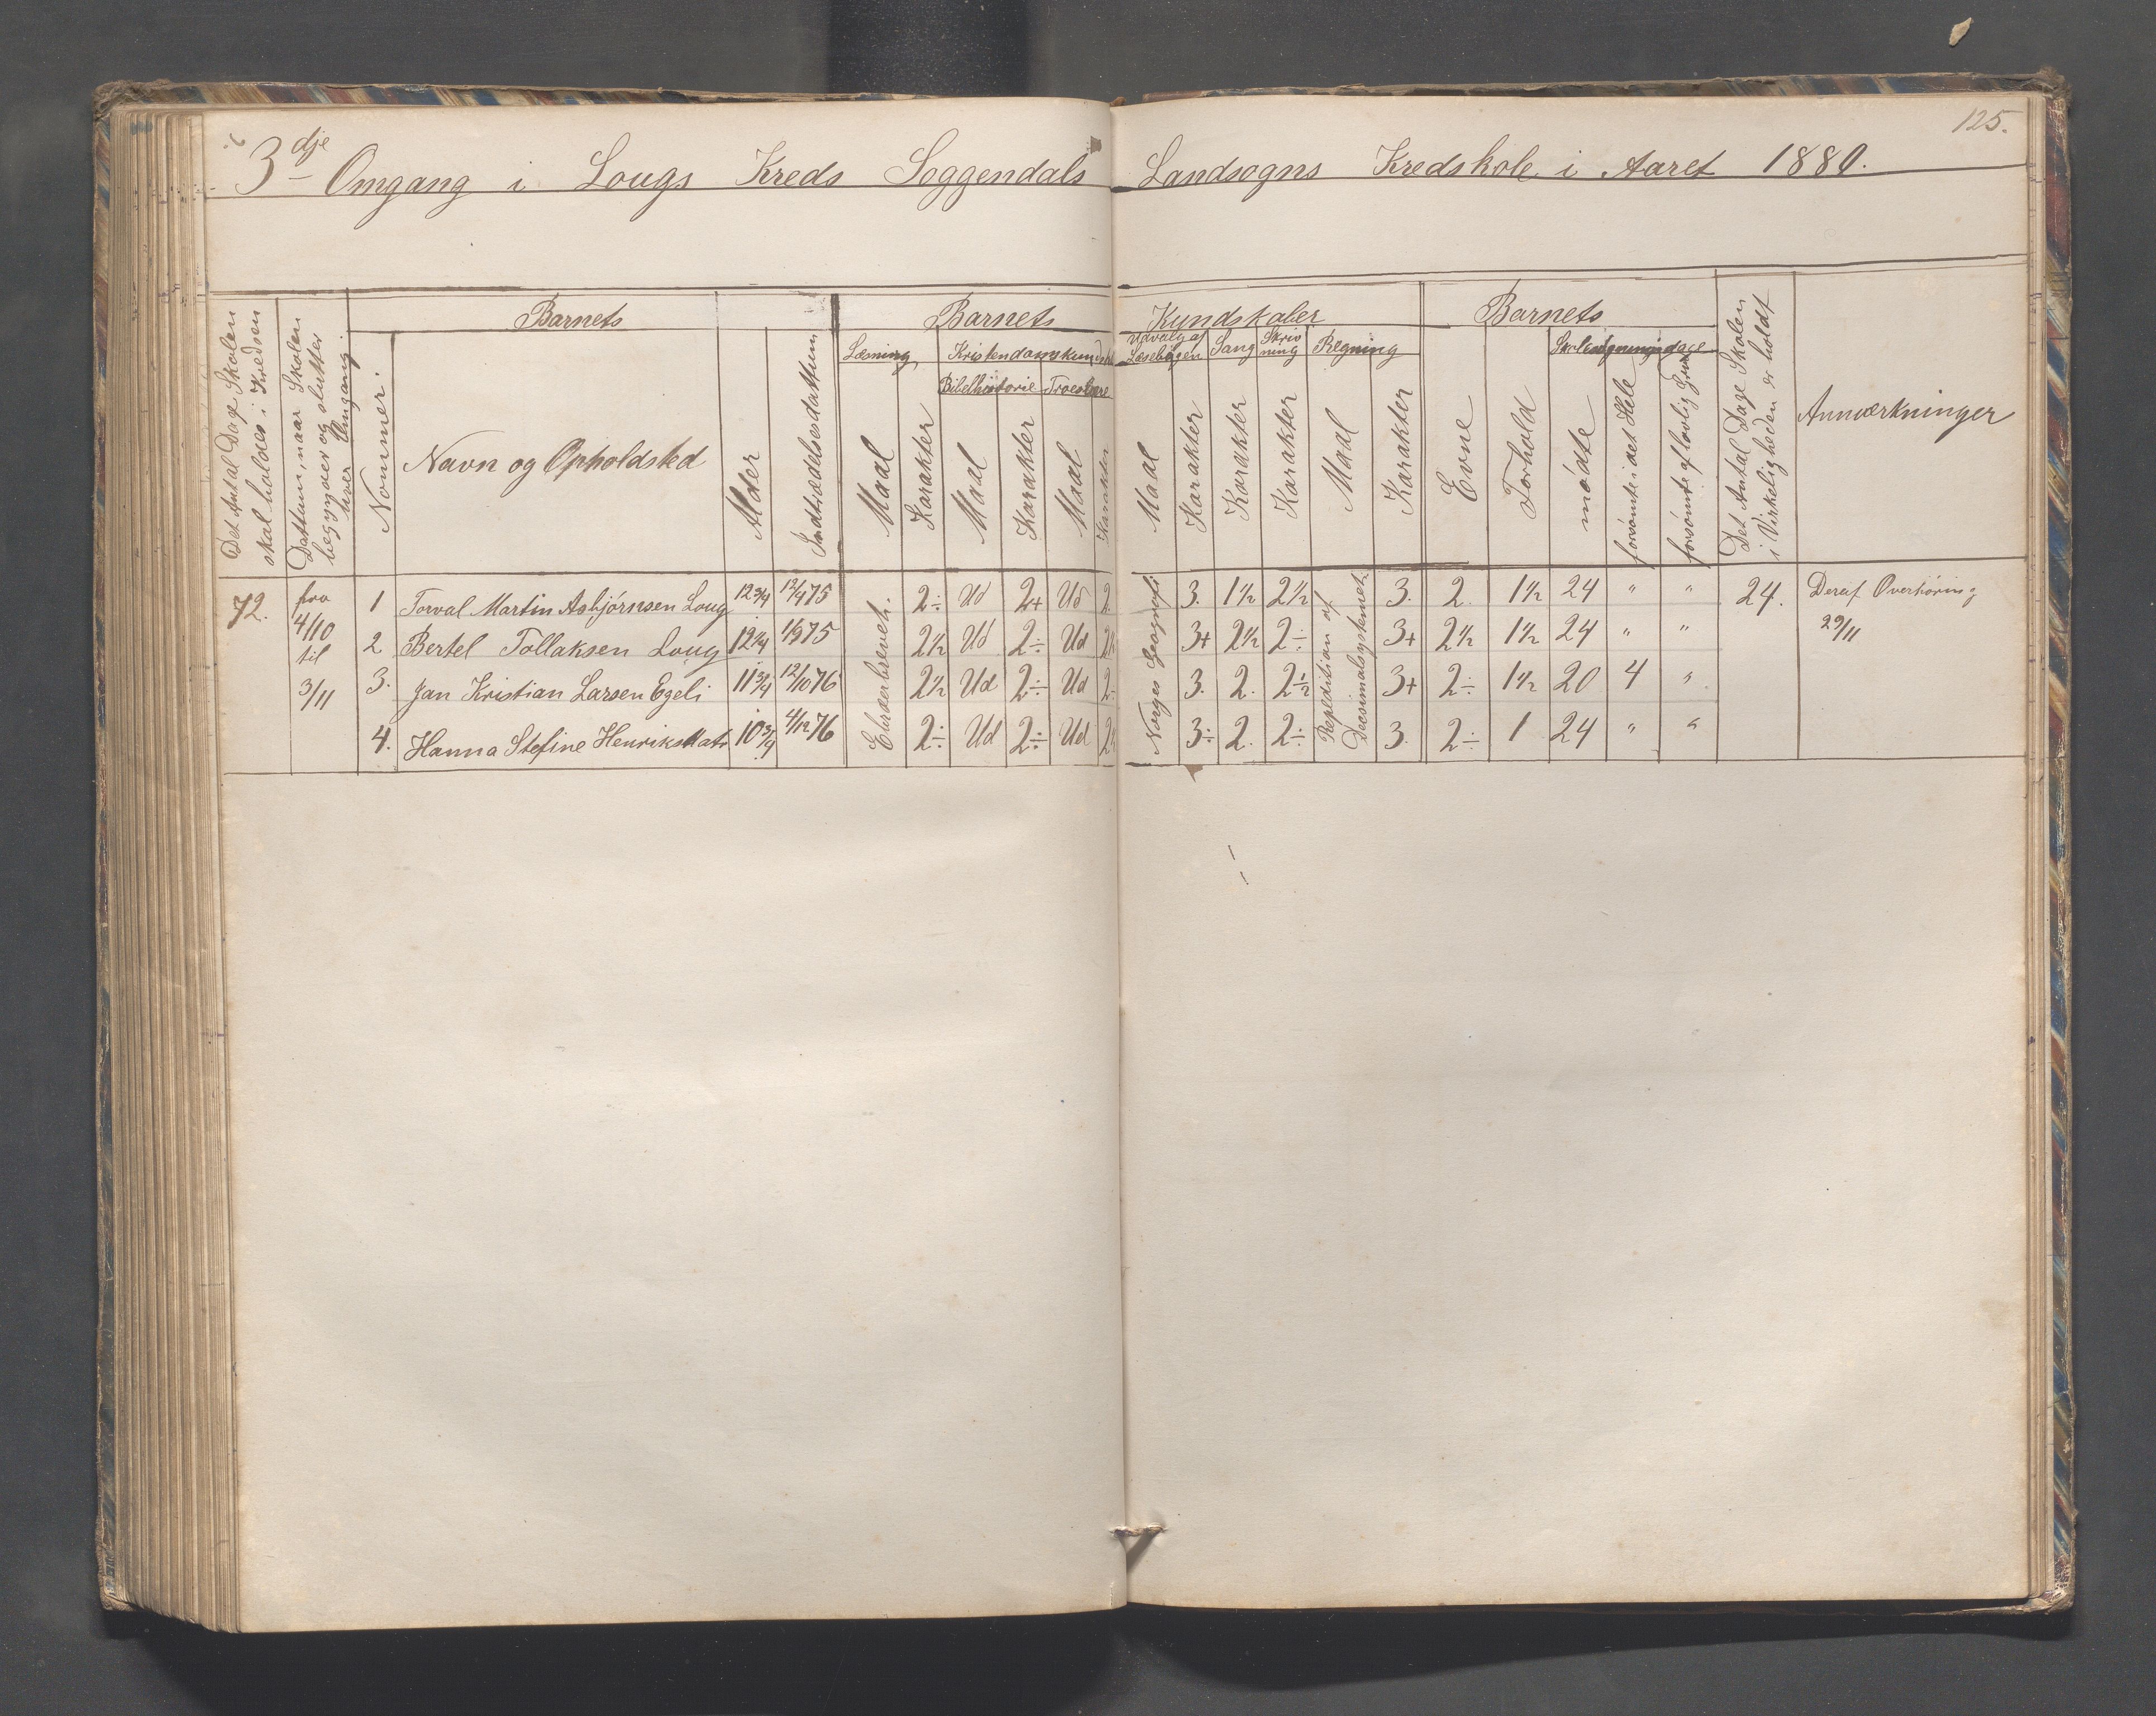 125.
3dje Omgang i Lougs Kreds Soggendals Landsogns Kredskole i Aaret 1880.
Det Antal Dage Skolen skal holdes i Kredsen
Dattum, naar Skolen begynder og slutter hver Omgang.
Nommer.
Barnets
Navn og Opholdsted
Alder
Indtrædelsesdattum
Barnets Kundskaber
Læsning,
Maal
Karakter
Kristendomskundskab
Bibelhistorie
Maal
Karakter
Troeslære
Maal
Karakter
Udvalg af Læsebogen
Maal
Karakter
Sang
Karakter
Skrivning
Karakter
Regning
Maal
Karakter
Barnets
Evne
Forhold
Skolesøgningsdage
mødte
forsømte i det Hele
forsømte af lovlig Grund
Det Antal Dage Skolen i Virkeligheden er holdt
Anmærkninger
72.
fra 4/10 til 3/11
1 Torval Martin Asbjørnsen Loug 12 3/4 12/4 75 2÷ Ud 2+ Ud 2. 3. 1 1/2 2 1/2 3. 2. 1 1/2 24 " " 24. Deraf Overhøring
2 Bertel Tollaksen Loug 12 1/4 1/9 75 2 1/2 Ud 2÷ Ud 2 1/2 3+ 2 1/2 2÷ 3+ 2 1/2 1 1/2 24 " " 29/11
3. Jan Kristian Larsen Egeli 11 3/4 12/10 76 2 1/2 Ud 2÷ Ud 2÷ 3. 2. 2 1/2 3+ 2÷ 1 1/2 20 4 "
4. Hanna Stefine Henriksdatr 10 3/4 4/12 76 2÷ Ud 2÷ Ud 2 1/2 3÷ 2. 2÷ 3. 2÷ 1 24 " "
Norges Geografi
Repedition af Decimalsystemet.